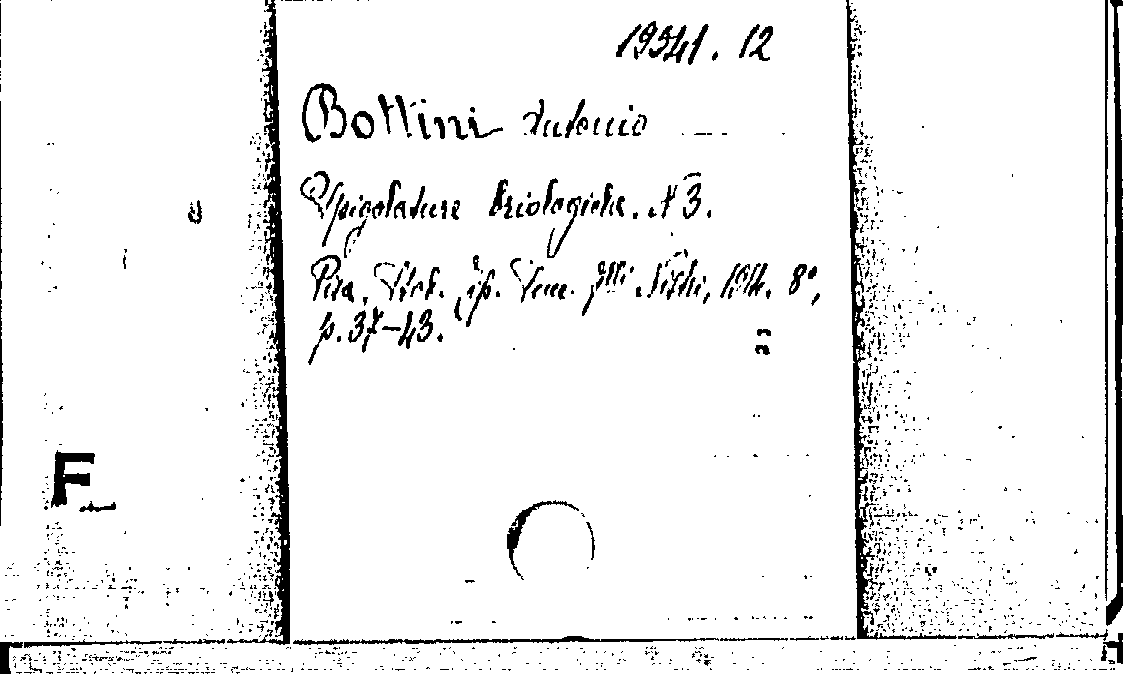 19341.12
Bottini Antonio
Spigolature briologiche. N 3.
Pisa, Stab. Tip. Succ. Flli Nistri, 1914. 8°,
p. 37-43.
F